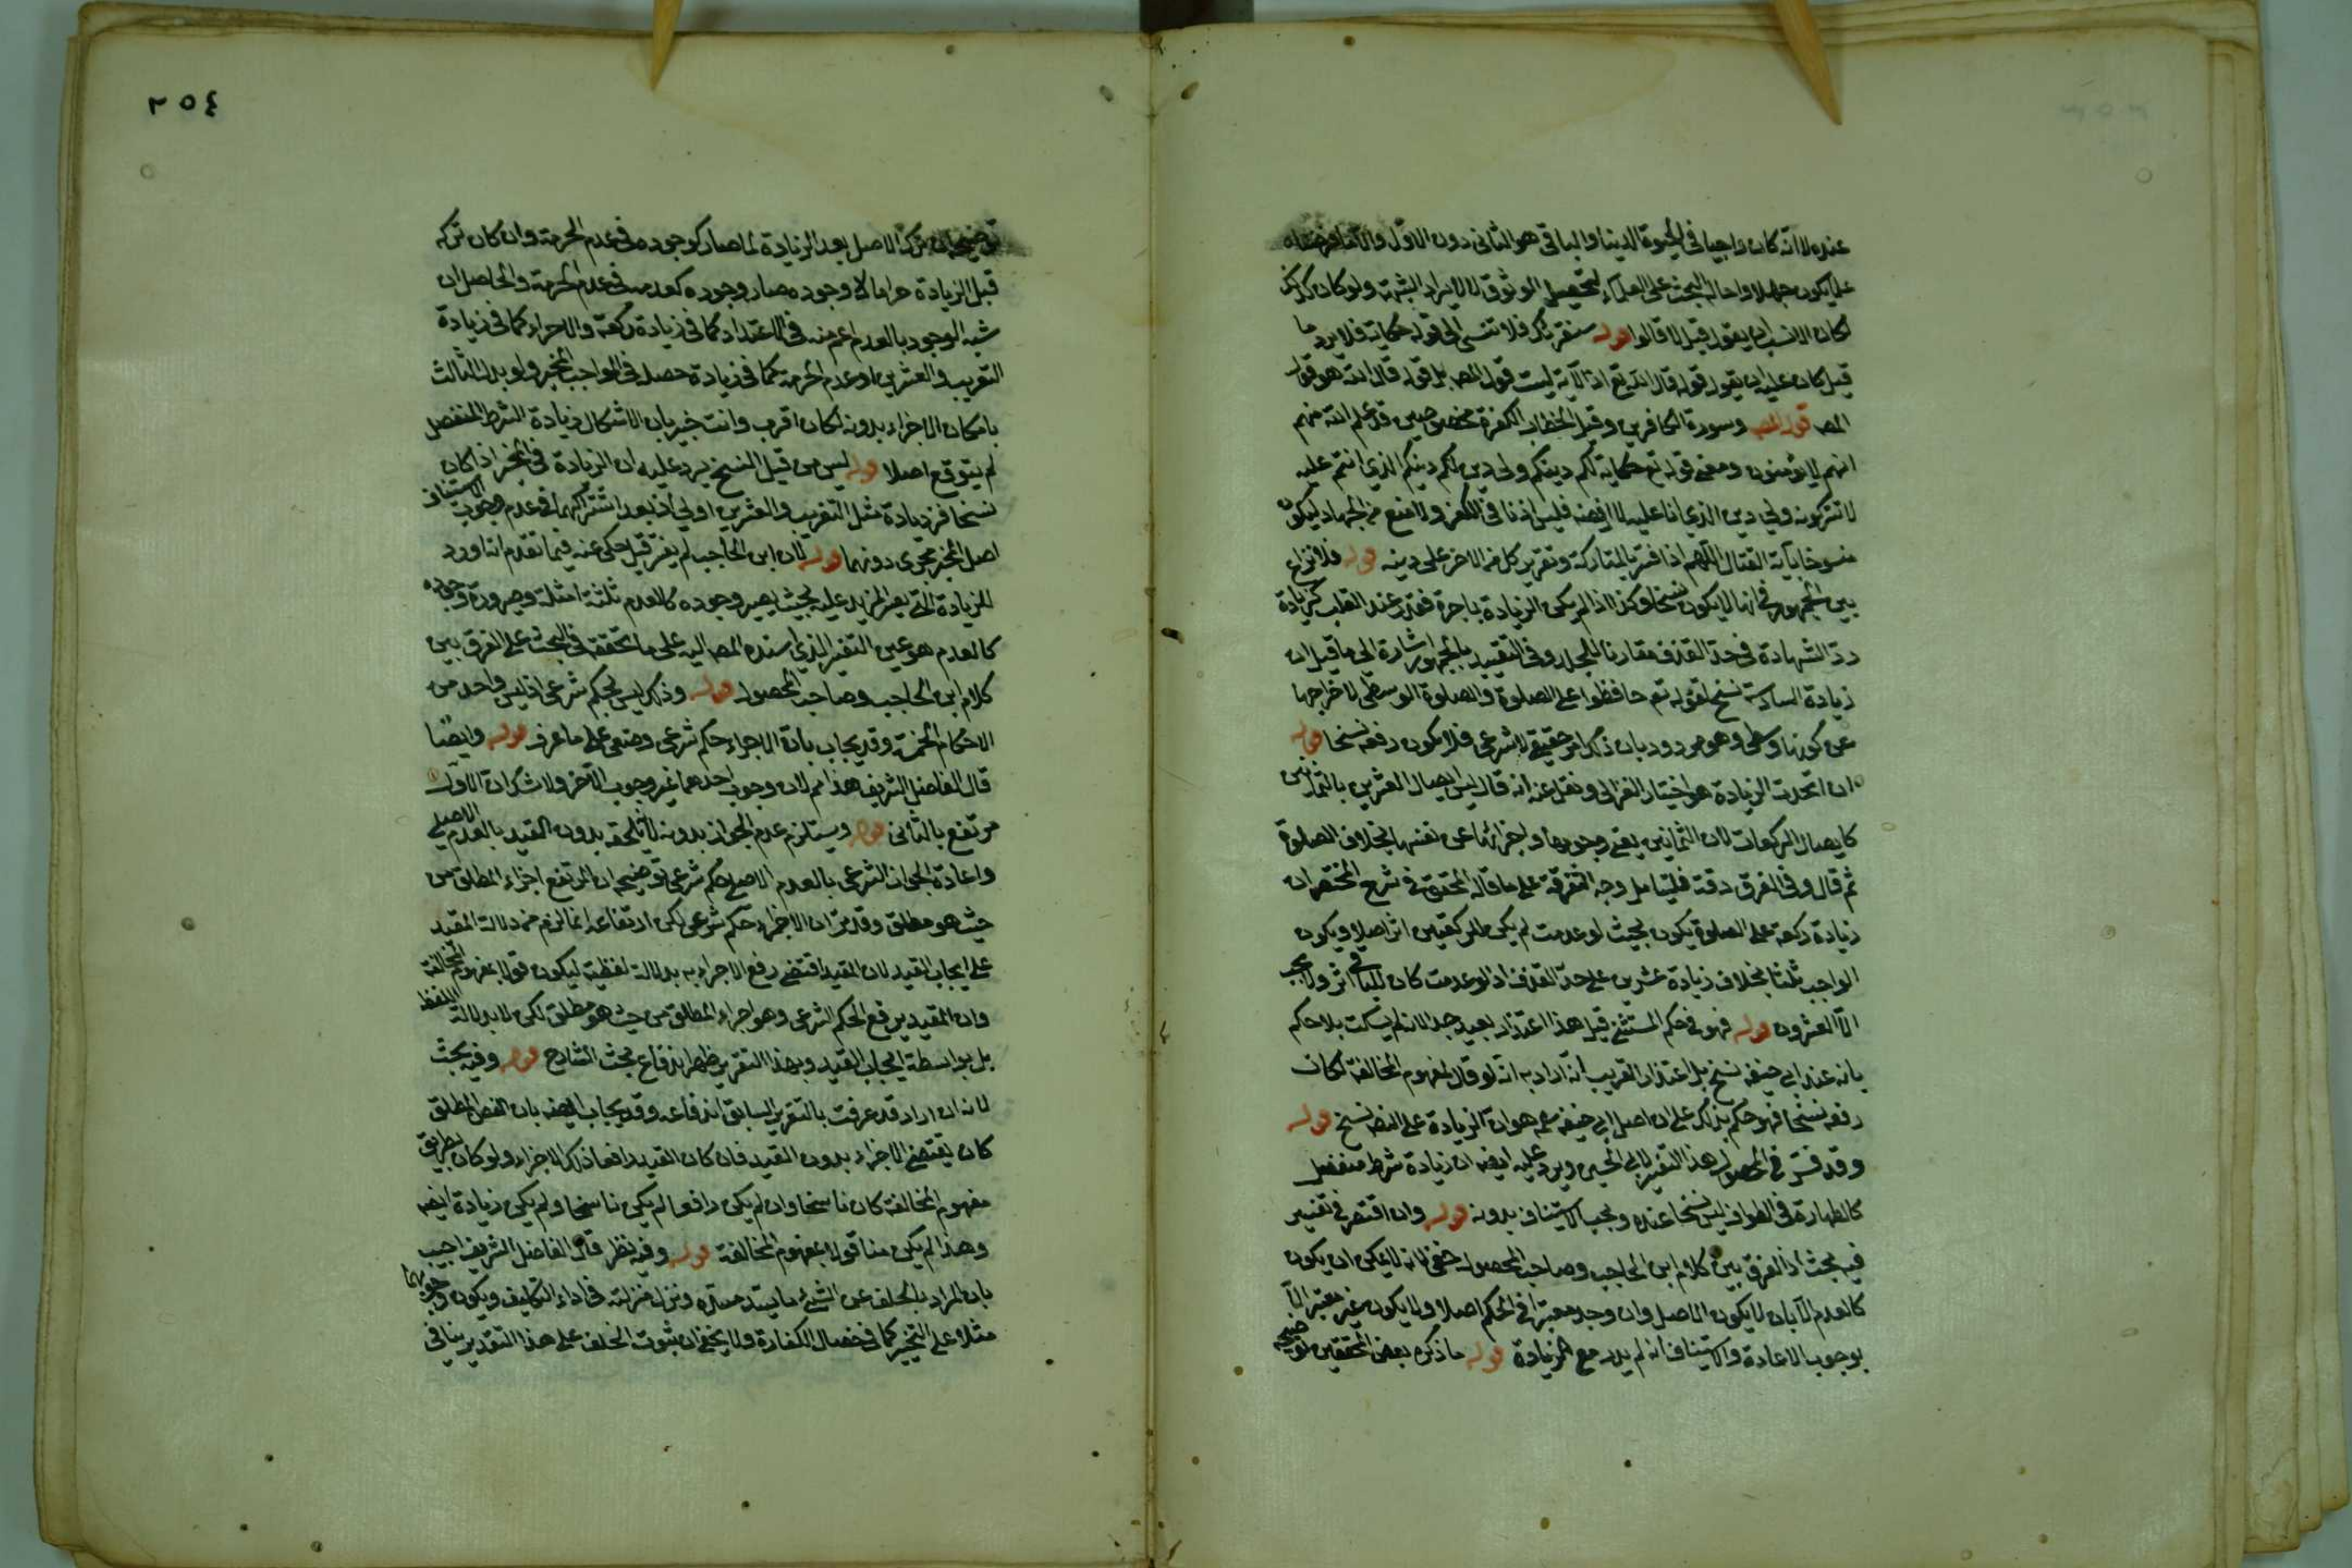 عنده لا انه كان واجبا في الحيوة الدنيا والباقي هو الثاني دون الاول
على العلماء لتحصيل الوثوق لا لايراد الشبهة ولو كان كذلك
لكان الانسب ان يقول قيل لا قالوا قوله سنقرئك فلا تنسى الى قوله حكاية فلا يرد ما
قيل كان عليه ان يقول قوله قال الله تع اذ الآية ليست قول المص بل قوله قال الله هو قول
المص قول المص وسورة الكافرين وقيل الخطاب لكفرة مخصوصين قد علم الله منهم
انهم لا يؤمنون ومعنى قوله تع حكاية لكم دينكم ولي دين لكم دينكم الذي انتم عليه
لا تتركونه ولي دين الذي انا عليه لا ارفضه فليس اذنا في الكفر ولا منع من الجهاد ليكون
منسوخا بآية القتال اللهم اذا فسر بالمتاركة وتقرير كل من الاخر على دينه قوله فلا نزاع
بين الجمهور في انها لا يكون نسخا وكذا اذا لم يكن الزيادة باخرة فعند القلب كزيادة
رد الشهادة في حد القذف مقارنا للجلد وفي التقييد بالجمهور اشارة الى ما قيل ان
زيادة السادسة نسخ لقوله تع حافظوا على الصلوة والصلوة الوسطى لاخراجها
عن كونها وسطى وهو مردود بان ذلك امر حقيقي لا شرعي فلا يكون رفعه نسخا قوله
ان اتحدت الزيادة هو اختيار الغزالي ونقل عنه انه قال ليس ايصال العشرين بالثمانين
كايصال الركعات لان الثمانين بقى وجوبها واجزائها عن نفسها بخلاف الصلوة
ثم قال وفي الفرق دقة فليتامل وجه التفرقة على ما قاله المحقق في شرح المختصر ان
زيادة ركعة على الصلوة يكون بحيث لو عدمت لم يكن للركعتين اثر اصلا ويكون
الواجب ثلثا بخلاف زيادة عشرين على حد القذف اذ لو عدمت كان للباقي اثر ولا يجب
الا العشرون قوله فهو في حكم المستثنى قيل هذا اعتذار بعيد جدا لانه لم يسكت بلا حكم
بانه عند ابي حنيفة نسخ بل اعتذار القريب انه اراد به انه لو قال بمفهوم المخالفة لكان
رفعه نسخا فهو حكم بذلك على ان اصل ابي حنيفة هو ان الزيادة على النص نسخ قوله
وقد فسر في المحصول هذا التفسير لابي الحسين ويرد عليه ايضا ان زيادة شرط منفصل
كالطهارة في الطواف ليس نسخا عنده ويجب الاستيناف بدونه قوله وان اقتصر في تفسير
فيه بحث اذ الفرق بين كلام ابن الحاجب وصاحب المحصول خفي لانه لا يمكن ان يكون
كالعدم الا بان لا يكون الاصل وان وجد معتبرا في الحكم اصلا ولا يكون غير معتبر الا
بوجوب الاعادة والاستيناف انه لم يرد مع الزيادة قوله ما ذكره بعض المحققين توضيحه
٢٥٤
توضيحه ان ترك الاصل بعد الزيادة لما صار كوجوده في عدم الحرمة وان كان تركه
قبل الزيادة حراما لا وجوده صار وجوده كعدمه في عدم الحرمة والحاصل ان
شبه الوجود بالعدم اعم منه في الاعتداد كما في زيادة ركعة والاجزاء كما في زيادة
التغريب والعشرين او عدم الحرمة كما في زيادة خصل في الواجب المخير ولو بدل الثالث
بامكان الاجزاء بدونه لكان اقرب وانت خبير بان الاشكال بزيادة الشرط المنفصل
لم يتوقع اصلا قوله ليس من قبيل النسخ يرد عليه ان الزيادة في المخير اذا كان
نسخا فزيادة مثل التغريب والعشرين اولى اذ بعد اشتراكهما في عدم وجوب الاستيناف
اصل المخير مجزى دونهما قوله لان ابن الحاجب لم يفسر قيل حكى عنه فيما تقدم انه اورد
للزيادة التي يغير المزيد عليه بحيث يصير وجوده كالعدم ثلثة امثلة وصيرورة وجوده
كالعدم هو عين التغير الذي اسنده المص اليه على ما تحققه في البحث على الفرق بين
كلام ابن الحاجب وصاحب المحصول قوله وذلك ليس بحكم شرعي اذ ليس واحد من
الاحكام الخمسة وقد يجاب بان الاجزاء حكم شرعي وضعي على ما عرف قوله وايضا
قال الفاضل الشريف هذا مم لان وجوب احدهما غير وجوب الآخر ولا شك ان الاول
مرتفع بالثاني قوله ويستلزم عدم الجواز بدونه لا تلحقه بدون القيد بالعدم الاصلي
واعادة الجواز الشرعي بالعدم الاصلي حكم شرعي توضيحه ان المرتفع اجزاء المطلق من
حيث هو مطلق وقد مر ان الاجزاء حكم شرعي لكن ارتفاعه انما لزم من دلالة المقيد
على ايجاب القيد لان المقيد اقتضى رفع الاجزاء به بدلالة لفظية ليكون قولا بمفهوم المخالفة
وان المقيد يرفع الحكم الشرعي وهو اجزاء المطلق من حيث هو مطلق لكن لا بدلالة اللفظ
بل بواسطة ايجاب القيد وبهذا التقرير ظهر اندفاع بحث الشارح قوله وفيه بحث
لانه ان اراد قد عرفت بالتقرير السابق اندفاعه وقد يجاب ايضا بان النص المطلق
كان يقتضي الاجزاء بدون القيد فان كان القيد رافعا ذلك الاجزاء ولو كان بطريق
مفهوم المخالفة كان ناسخا وان لم يكن رافعا لم يكن ناسخا ولم يكن زيادة ايضا
وهذا لم يكن منا قولا بمفهوم المخالفة قوله وفيه نظر قال الفاضل الشريف اجيب
بان المراد بالخلف عن الشيء ما يسد مسده ونزل منزلته في اداء التكليف ويكون وجوبهما
مثلا على التخيير كما في خصال الكفارة ولا يخفى ان ثبوت الخلف على هذا التقدير ينافي